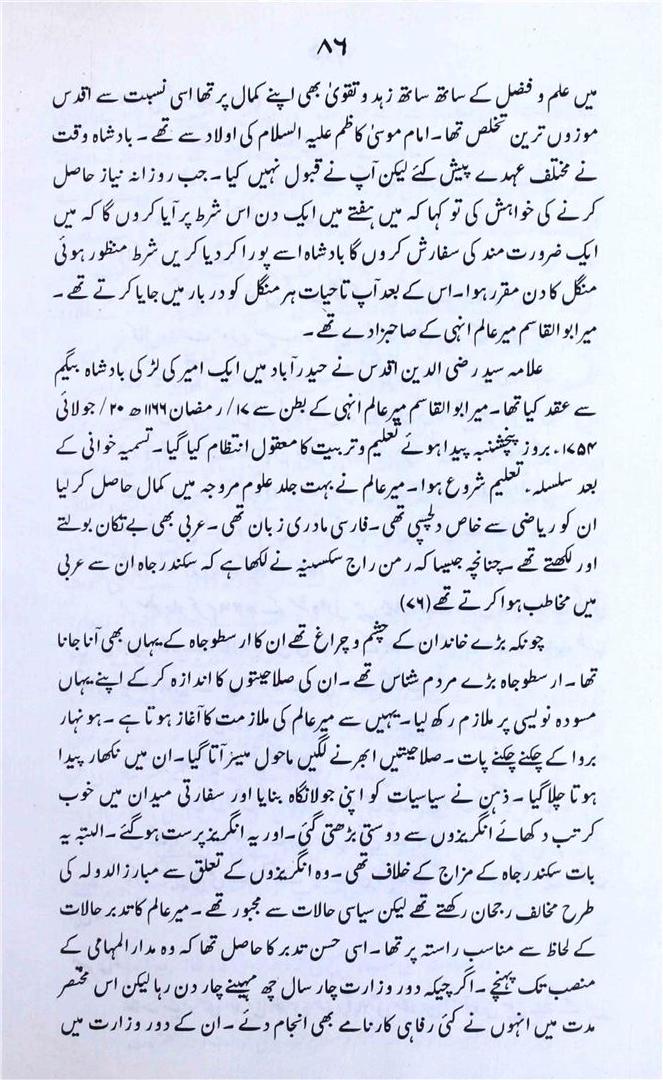 ۸۶
میں علم و فضل کے ساتھ ساتھ زہد و تقویٰ بھی اپنے کمال پر تھا اسی نسبت سے اقدس
موزوں ترین تخلص تھا۔ امام موسیٰ کاظم علیہ السلام کی اولاد سے تھے۔ بادشاہ وقت
نے مختلف عہدے پیش کئے لیکن آپ نے قبول نہیں کیا۔ جب روزانہ نیاز حاصل
کرنے کی خواہش کی تو کہا کہ میں ہفتے میں ایک دن اس شرط پر آیا کروں گا کہ میں
ایک ضرورت مند کی سفارش کروں گا بادشاہ اسے پورا کر دیا کریں شرط منظور ہوئی
منگل کا دن مقرر ہوا۔ اس کے بعد آپ تاحیات ہر منگل کو دربار میں جایا کرتے تھے۔
میر ابوالقاسم میر عالم انہی کے صاحبزادے تھے۔
علامہ سید رضی الدین اقدس نے حیدرآباد میں ایک امیر کی لڑکی بادشاہ بیگم
سے عقد کیا تھا۔ میر ابوالقاسم میر عالم انہی کے بطن سے ۱۷/ رمضان ۱۱۶۶ھ ۲۰/ جولائی
۱۷۵۴ء بروز پنجشنبہ پیدا ہوئے تعلیم و تربیت کا معقول انتظام کیا گیا۔ تسمیہ خوانی کے
بعد سلسلہء تعلیم شروع ہوا۔ میر عالم نے بہت جلد علوم مروجہ میں کمال حاصل کر لیا
ان کو ریاضی سے خاص دلچسپی تھی۔ فارسی مادری زبان تھی۔ عربی بھی بے تکان بولتے
اور لکھتے تھے۔ چنانچہ جیسا کہ رمن راج سکسینہ نے لکھا ہے کہ سکندر جاہ ان سے عربی
میں مخاطب ہوا کرتے تھے (۷۶)
چونکہ بڑے خاندان کے چشم و چراغ تھے ان کا ارسطو جاہ کے یہاں بھی آنا جانا
تھا۔ ارسطو جاہ بڑے مردم شناس تھے۔ ان کی صلاحیتوں کا اندازہ کر کے اپنے یہاں
مسودہ نویسی پر ملازم رکھ لیا۔ یہیں سے میر عالم کی ملازمت کا آغاز ہوتا ہے۔ ہونہار
بروا کے چکنے چکنے پات۔ صلاحیتیں ابھرنے لگیں ماحول میسر آتا گیا۔ ان میں نکھار پیدا
ہوتا چلا گیا۔ ذہن نے سیاسیات کو اپنی جولانگاہ بنایا اور سفارتی میدان میں خوب
کرتب دکھائے انگریزوں سے دوستی بڑھتی گئی۔ اور یہ انگریز پرست ہو گئے۔ البتہ یہ
بات سکندر جاہ کے مزاج کے خلاف تھی۔ وہ انگریزوں کے تعلق سے مبارزالدولہ کی
طرح مخالف رجحان رکھتے تھے لیکن سیاسی حالات سے مجبور تھے۔ میر عالم کا تدبر حالات
کے لحاظ سے مناسب راستہ پر تھا۔ اسی حسن تدبر کا حاصل تھا کہ وہ مدارالمہامی کے
منصب تک پہنچے۔ اگرچیکہ دور وزارت چار سال چھ مہینے چار دن رہا لیکن اس مختصر
مدت میں انہوں نے کئی رفاہی کارنامے بھی انجام دئے۔ ان کے دور وزارت میں